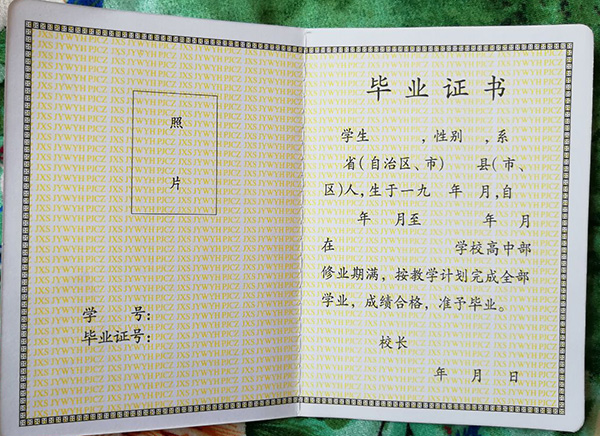 照
片
学 号：
毕业证号：
毕业证书
学生 ，性别 ，系
省（自治区、市） 县（市、
区）人，生于一九 年 月，自
年 月至 年 月
在 学校高中部
修业期满，按教学计划完成全部
学业，成绩合格，准予毕业。
校长
年 月 日